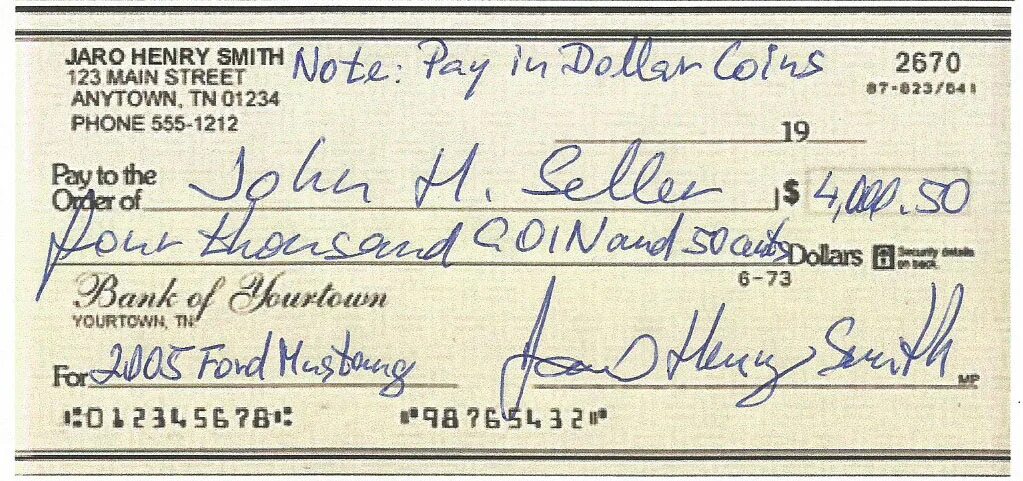 JARO HENRY SMITH Note: Pay in Dollar Coins 2670
123 MAIN STREET 87-823/641
ANYTOWN, TN 01234
PHONE 555-1212 19
Pay to the
Order of John H. Seller $ 4,000.50
four thousand COIN and 50 cents Dollars Security details
on back.
6-73
Bank of Yourtown
YOURTOWN, TN
For 2005 Ford Mustang Jaro Henry Smith MP
⑆012345678⑆ ⑈98765432⑈